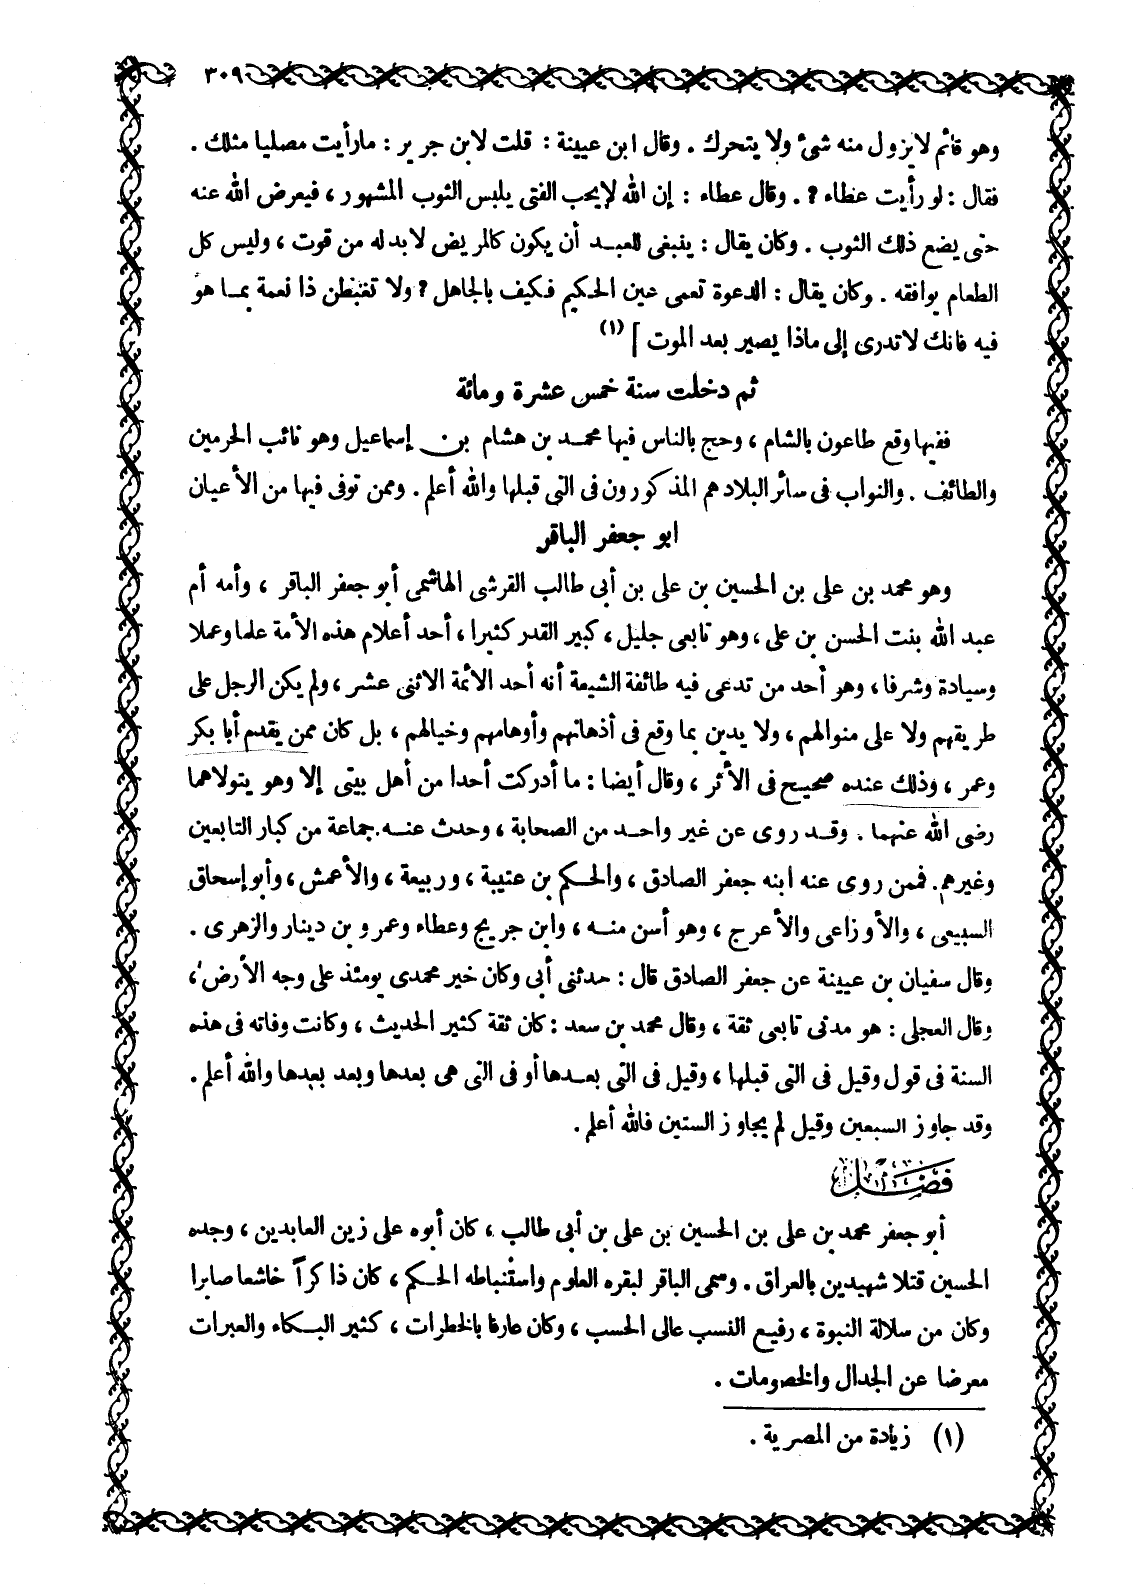 ٣٠٩
وهو قائم لا يزول منه شئ ولا يتحرك . وقال ابن عيينة : قلت لابن جرير : مارأيت مصليا مثلك .
فقال : لو رأيت عطاء ? . وقال عطاء : إن الله لايحب الفتى يلبس الثوب المشهور ، فيعرض الله عنه
حتى يضع ذلك الثوب . وكان يقال : ينبغى للعبد أن يكون كالمريض لا بد له من قوت ، وليس كل
الطعام يوافقه . وكان يقال : الدعوة تعمى عين الحكيم فكيف بالجاهل ? ولا تغبطن ذا نعمة بما هو
فيه فانك لاتدرى إلى ماذا يصير بعد الموت ] (١)
ثم دخلت سنة خمس عشرة ومائة
ففيها وقع طاعون بالشام ، وحج بالناس فيها محمد بن هشام بن إسماعيل وهو نائب الحرمين
والطائف . والنواب فى سائر البلاد هم المذكورون فى التى قبلها والله أعلم . وممن توفى فيها من الأعيان
ابو جعفر الباقر
وهو محمد بن على بن الحسين بن على بن أبى طالب القرشى الهاشمى أبو جعفر الباقر ، وأمه أم
عبد الله بنت الحسن بن على ، وهو تابعى جليل ، كبير القدر كثيرا ، أحد أعلام هذه الأمة علما وعملا
وسيادة وشرفا ، وهو أحد من تدعى فيه طائفة الشيعة أنه أحد الأئمة الاثنى عشر ، ولم يكن الرجل على
طريقهم ولا على منوالهم ، ولا يدين بما وقع فى أذهانهم وأوهامهم وخيالهم ، بل كان ممن يقدم أبا بكر
وعمر ، وذلك عنده صحيح فى الأثر ، وقال أيضا : ما أدركت أحدا من أهل بيتى إلا وهو يتولاهما
رضى الله عنهما . وقد روى عن غير واحد من الصحابة ، وحدث عنه جماعة من كبار التابعين
وغيرهم . فممن روى عنه ابنه جعفر الصادق ، والحكم بن عتيبة ، وربيعة ، والأعمش ، وأبو إسحاق
السبيعى ، والأوزاعى والأعرج ، وهو أسن منه ، وابن جريج وعطاء وعمرو بن دينار والزهرى .
وقال سفيان بن عيينة عن جعفر الصادق قال : حدثنى أبى وكان خير محمدى يومئذ على وجه الأرض ،
وقال العجلى : هو مدنى تابعى ثقة ، وقال محمد بن سعد : كان ثقة كثير الحديث ، وكانت وفاته فى هذه
السنة فى قول وقيل فى التى قبلها ، وقيل فى التى بعدها أو فى التى هى بعدها وبعد بعدها والله أعلم .
وقد جاوز السبعين وقيل لم يجاوز الستين فالله أعلم .
فصل
أبو جعفر محمد بن على بن الحسين بن على بن أبى طالب ، كان أبوه على زين العابدين ، وجده
الحسين قتلا شهيدين بالعراق . وسمى الباقر لبقره العلوم واستنباطه الحكم ، كان ذا كراً خاشعا صابرا
وكان من سلالة النبوة ، رفيع النسب عالى الحسب ، وكان عارفا بالخطرات ، كثير البكاء والعبرات
معرضا عن الجدال والخصومات .
(١) زيادة من المصرية .